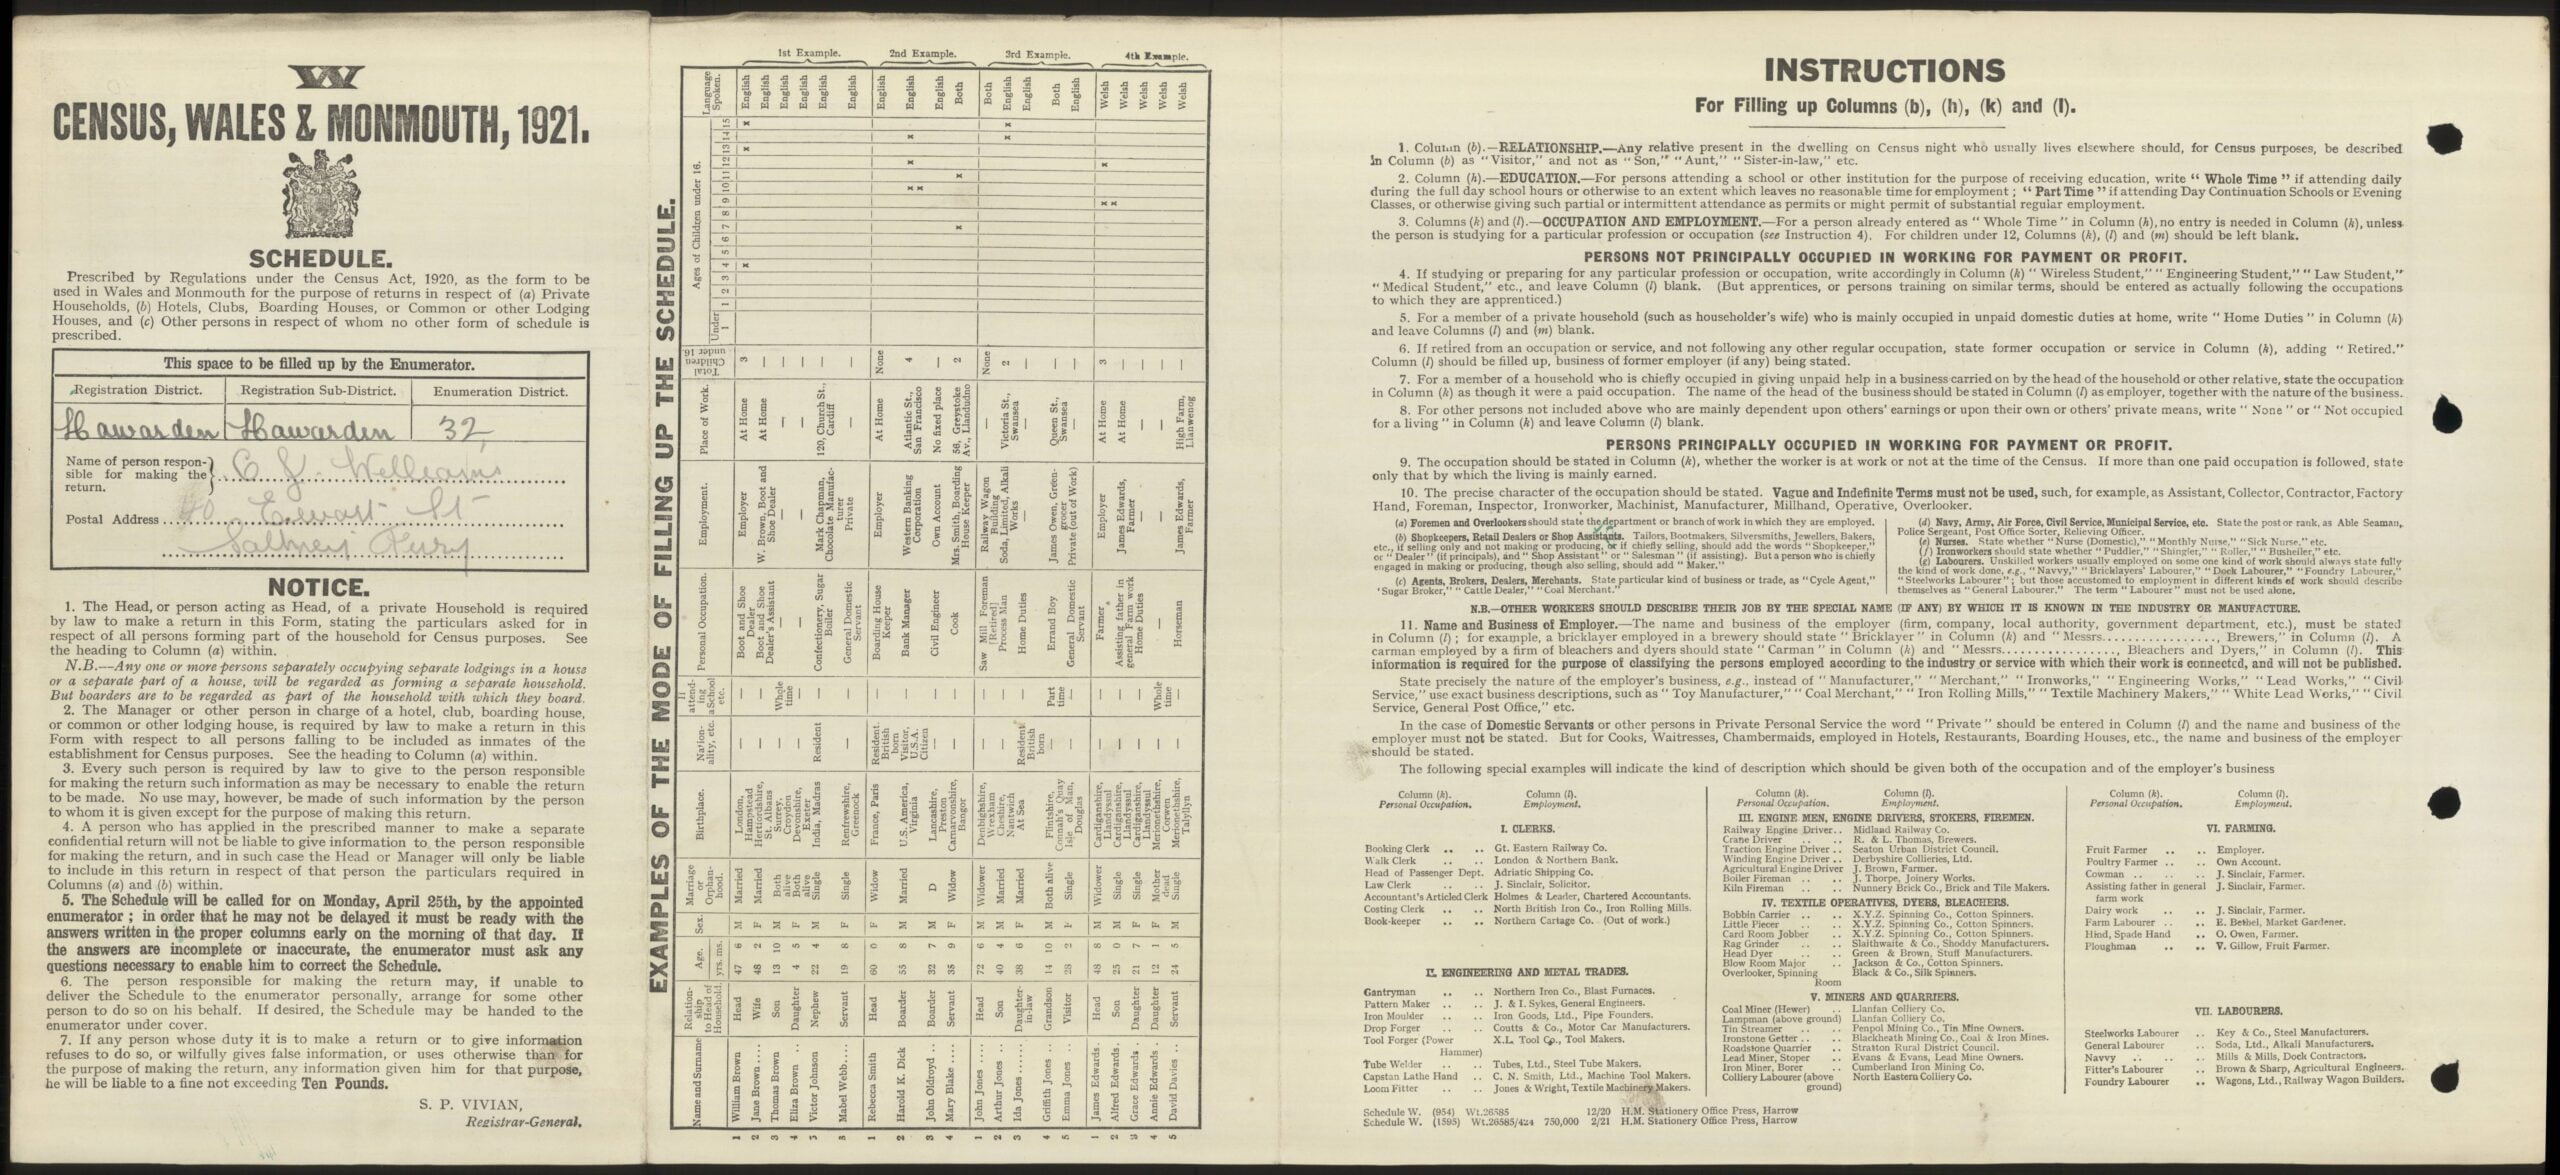 W
CENSUS, WALES & MONMOUTH, 1921.
SCHEDULE.
Prescribed by Regulations under the Census Act, 1920, as the form to be
used in Wales and Monmouth for the purpose of returns in respect of (a) Private
Households, (b) Hotels, Clubs, Boarding Houses, or Common or other Lodging
Houses, and (c) Other persons in respect of whom no other form of schedule is
prescribed.
This space to be filled up by the Enumerator.
Registration District. Registration Sub-District. Enumeration District.
Hawarden Hawarden 32
Name of person respon-
sible for making the
return.
Williams
Postal Address
40 Ewart St
Saltney Ferry
NOTICE.
1. The Head, or person acting as Head, of a private Household is required
by law to make a return in this Form, stating the particulars asked for in
respect of all persons forming part of the household for Census purposes. See
the heading to Column (a) within.
N.B.—Any one or more persons separately occupying separate lodgings in a house
or a separate part of a house, will be regarded as forming a separate household.
But boarders are to be regarded as part of the household with which they board.
2. The Manager or other person in charge of a hotel, club, boarding house,
or common or other lodging house, is required by law to make a return in this
Form with respect to all persons falling to be included as inmates of the
establishment for Census purposes. See the heading to Column (a) within.
3. Every such person is required by law to give to the person responsible
for making the return such information as may be necessary to enable the return
to be made. No use may, however, be made of such information by the person
to whom it is given except for the purpose of making this return.
4. A person who has applied in the prescribed manner to make a separate
confidential return will not be liable to give information to the person responsible
for making the return, and in such case the Head or Manager will only be liable
to include in this return in respect of that person the particulars required in
Columns (a) and (b) within.
5. The Schedule will be called for on Monday, April 25th, by the appointed
enumerator ; in order that he may not be delayed it must be ready with the
answers written in the proper columns early on the morning of that day. If
the answers are incomplete or inaccurate, the enumerator must ask any
questions necessary to enable him to correct the Schedule.
6. The person responsible for making the return may, if unable to
deliver the Schedule to the enumerator personally, arrange for some other
person to do so on his behalf. If desired, the Schedule may be handed to the
enumerator under cover.
7. If any person whose duty it is to make a return or to give information
refuses to do so, or wilfully gives false information, or uses otherwise than for
the purpose of making the return, any information given him for that purpose,
he will be liable to a fine not exceeding Ten Pounds.
S. P. VIVIAN,
Registrar-General.
EXAMPLES OF THE MODE OF FILLING UP THE SCHEDULE.
Name and Surname
Relation-ship to Head of Household.
Age. yrs. ms.
Sex.
Marriage or Orphan-hood.
Birthplace.
Nation-ality, etc.
If attend-ing a School etc.
Personal Occupation.
Employment.
Place of Work.
Total Children under 16.
Ages of Children under 16.
Under 1 1 2 3 4 5 6 7 8 9 10 11 12 13 14 15
Language Spoken.
1st Example.
1 William Brown Head 47 6 M Married London, Hampstead — — Boot and Shoe Dealer Employer At Home 3 x x x English
2 Jane Brown Wife 48 2 F Married Hertfordshire, St. Albans — — Boot and Shoe Dealer's Assistant W. Brown, Boot and Shoe Dealer At Home — English
3 Thomas Brown Son 13 10 M Both alive Surrey, Croydon — Whole time — — — — English
4 Eliza Brown Daughter 4 5 F Both alive Devonshire, Exeter — — — — — — English
5 Victor Johnson Nephew 22 4 M Single India, Madras Resident — Confectionery, Sugar Boiler Mark Chapman, Chocolate Manufac-turer 120, Church St., Cardiff — English
Mabel Webb Servant 19 8 F Single Renfrewshire, Greenock — — General Domestic Servant Private — — English
2nd Example.
1 Rebecca Smith Head 60 0 F Widow France, Paris Resident British born — Boarding House Keeper Employer At Home None English
2 Harold K. Dick Boarder 55 8 M Married U.S. America, Virginia Visitor, U.S.A. Citizen — Bank Manager Western Banking Corporation Atlantic St., San Francisco 4 x x x x English
3 John Oldroyd Boarder 32 7 M D Lancashire, Preston — — Civil Engineer Own Account No fixed place — English
4 Mary Blake Servant 35 9 F Widow Carnarvonshire, Bangor — — Cook Mrs. Smith, Boarding House Keeper 56, Greystoke Av., Llandudno 2 x x Both
3rd Example.
1 John Jones Head 72 6 M Widower Denbighshire, Wrexham — — Saw Mill Foreman [Retired] Railway Wagon Building — None Both
2 Arthur Jones Son 40 4 M Married Cheshire, Nantwich — — Process Man Soda, Limited, Alkali Works Victoria St., Swansea 2 x x English
3 Ida Jones Daughter-in-law 38 6 F Married At Sea Resident British born — Home Duties — — — English
4 Griffith Jones Grandson 14 10 M Both alive Flintshire, Connah's Quay — Part time Errand Boy James Owen, Green-grocer Queen St., Swansea — Both
5 Emma Jones Visitor 28 2 F Single Isle of Man, Douglas — — General Domestic Servant Private (out of Work) — — English
4th Example.
1 James Edwards Head 48 8 M Widower Cardiganshire, Llandyssul — — Farmer Employer At Home 3 x x x Welsh
2 Alfred Edwards Son 25 0 M Single Cardiganshire, Llandyssul — — Assisting father in general Farm work James Edwards, Farmer At Home — Welsh
3 Grace Edwards Daughter 21 7 F Single Cardiganshire, Llandyssul — — Home Duties — — — Welsh
4 Annie Edwards Daughter 12 1 F Mother dead Merionethshire, Corwen — Whole time — — — — Welsh
5 David Davies Servant 24 5 M Single Merionethshire, Talyllyn — — Horseman James Edwards, Farmer High Farm, Llanwenog — Welsh
INSTRUCTIONS
For Filling up Columns (b), (h), (k) and (l).
1. Column (b).—RELATIONSHIP.—Any relative present in the dwelling on Census night who usually lives elsewhere should, for Census purposes, be described
in Column (b) as "Visitor," and not as "Son," "Aunt," "Sister-in-law," etc.
2. Column (h).—EDUCATION.—For persons attending a school or other institution for the purpose of receiving education, write "Whole Time" if attending daily
during the full day school hours or otherwise to an extent which leaves no reasonable time for employment ; "Part Time" if attending Day Continuation Schools or Evening
Classes, or otherwise giving such partial or intermittent attendance as permits or might permit of substantial regular employment.
3. Columns (k) and (l).—OCCUPATION AND EMPLOYMENT.—For a person already entered as "Whole Time" in Column (h), no entry is needed in Column (k), unless
the person is studying for a particular profession or occupation (see Instruction 4). For children under 12, Columns (k), (l) and (m) should be left blank.
PERSONS NOT PRINCIPALLY OCCUPIED IN WORKING FOR PAYMENT OR PROFIT.
4. If studying or preparing for any particular profession or occupation, write accordingly in Column (k) "Wireless Student," "Engineering Student," "Law Student,"
"Medical Student," etc., and leave Column (l) blank. (But apprentices, or persons training on similar terms, should be entered as actually following the occupations
to which they are apprenticed.)
5. For a member of a private household (such as householder's wife) who is mainly occupied in unpaid domestic duties at home, write "Home Duties" in Column (k)
and leave Columns (l) and (m) blank.
6. If retired from an occupation or service, and not following any other regular occupation, state former occupation or service in Column (k), adding "Retired."
Column (l) should be filled up, business of former employer (if any) being stated.
7. For a member of a household who is chiefly occupied in giving unpaid help in a business carried on by the head of the household or other relative, state the occupation
in Column (k) as though it were a paid occupation. The name of the head of the business should be stated in Column (l) as employer, together with the nature of the business.
8. For other persons not included above who are mainly dependent upon others' earnings or upon their own or others' private means, write "None" or "Not occupied
for a living" in Column (k) and leave Column (l) blank.
PERSONS PRINCIPALLY OCCUPIED IN WORKING FOR PAYMENT OR PROFIT.
9. The occupation should be stated in Column (k), whether the worker is at work or not at the time of the Census. If more than one paid occupation is followed, state
only that by which the living is mainly earned.
10. The precise character of the occupation should be stated. Vague and Indefinite Terms must not be used, such, for example, as Assistant, Collector, Contractor, Factory
Hand, Foreman, Inspector, Ironworker, Machinist, Manufacturer, Millhand, Operative, Overlooker.
(a) Foremen and Overlookers should state the department or branch of work in which they are employed.
(b) Shopkeepers, Retail Dealers or Shop Assistants. Tailors, Bootmakers, Silversmiths, Jewellers, Bakers,
etc., if selling only and not making or producing, or if chiefly selling, should add the words "Shopkeeper,"
or "Dealer" (if principals), and "Shop Assistant" or "Salesman" (if assisting). But a person who is chiefly
engaged in making or producing, though also selling, should add "Maker."
(c) Agents, Brokers, Dealers, Merchants. State particular kind of business or trade, as "Cycle Agent,"
"Sugar Broker," "Cattle Dealer," "Coal Merchant."
(d) Navy, Army, Air Force, Civil Service, Municipal Service, etc. State the post or rank, as Able Seaman,
Police Sergeant, Post Office Sorter, Relieving Officer.
(e) Nurses. State whether "Nurse (Domestic)," "Monthly Nurse," "Sick Nurse," etc.
(f) Ironworkers should state whether "Puddler," "Shingler," "Roller," "Busheller," etc.
(g) Labourers. Unskilled workers usually employed on some one kind of work should always state fully
the kind of work done, e.g., "Navvy," "Bricklayers' Labourer," "Dock Labourer," "Foundry Labourer,"
"Steelworks Labourer" ; but those accustomed to employment in different kinds of work should describe
themselves as "General Labourer." The term "Labourer" must not be used alone.
N.B.—OTHER WORKERS SHOULD DESCRIBE THEIR JOB BY THE SPECIAL NAME (IF ANY) BY WHICH IT IS KNOWN IN THE INDUSTRY OR MANUFACTURE.
11. Name and Business of Employer.—The name and business of the employer (firm, company, local authority, government department, etc.), must be stated
in Column (l) ; for example, a bricklayer employed in a brewery should state "Bricklayer" in Column (k) and "Messrs................, Brewers," in Column (l). A
carman employed by a firm of bleachers and dyers should state "Carman" in Column (k) and "Messrs................, Bleachers and Dyers," in Column (l). This
information is required for the purpose of classifying the persons employed according to the industry or service with which their work is connected, and will not be published.
State precisely the nature of the employer's business, e.g., instead of "Manufacturer," "Merchant," "Ironworks," "Engineering Works," "Lead Works," "Civil
Service," use exact business descriptions, such as "Toy Manufacturer," "Coal Merchant," "Iron Rolling Mills," "Textile Machinery Makers," "White Lead Works," "Civil
Service, General Post Office," etc.
In the case of Domestic Servants or other persons in Private Personal Service the word "Private" should be entered in Column (l) and the name and business of the
employer must not be stated. But for Cooks, Waitresses, Chambermaids, employed in Hotels, Restaurants, Boarding Houses, etc., the name and business of the employer
should be stated.
The following special examples will indicate the kind of description which should be given both of the occupation and of the employer's business
Column (k). Column (l).
Personal Occupation. Employment.
I. CLERKS.
Booking Clerk .. .. Gt. Eastern Railway Co.
Walk Clerk .. .. London & Northern Bank.
Head of Passenger Dept. Adriatic Shipping Co.
Law Clerk .. .. J. Sinclair, Solicitor.
Accountant's Articled Clerk Holmes & Leader, Chartered Accountants.
Costing Clerk .. .. North British Iron Co., Iron Rolling Mills.
Book-keeper .. .. Northern Cartage Co. (Out of work.)
II. ENGINEERING AND METAL TRADES.
Gantryman .. .. Northern Iron Co., Blast Furnaces.
Pattern Maker .. .. J. & I. Sykes, General Engineers.
Iron Moulder .. .. Iron Goods, Ltd., Pipe Founders.
Drop Forger .. .. Coutts & Co., Motor Car Manufacturers.
Tool Forger (Power Hammer) X.L. Tool Co., Tool Makers.
Tube Welder .. .. Tubes, Ltd., Steel Tube Makers.
Capstan Lathe Hand .. C. N. Smith, Ltd., Machine Tool Makers.
Loom Fitter .. .. Jones & Wright, Textile Machinery Makers.
Column (k). Column (l).
Personal Occupation. Employment.
III. ENGINE MEN, ENGINE DRIVERS, STOKERS, FIREMEN.
Railway Engine Driver .. Midland Railway Co.
Crane Driver .. .. R. & L. Thomas, Brewers.
Traction Engine Driver .. Seaton Urban District Council.
Winding Engine Driver .. Derbyshire Collieries, Ltd.
Agricultural Engine Driver J. Brown, Farmer.
Boiler Fireman .. .. J. Thorpe, Joinery Works.
Kiln Fireman .. .. Nunnery Brick Co., Brick and Tile Makers.
IV. TEXTILE OPERATIVES, DYERS, BLEACHERS.
Bobbin Carrier .. .. X.Y.Z. Spinning Co., Cotton Spinners.
Little Piecer .. .. X.Y.Z. Spinning Co., Cotton Spinners.
Card Room Jobber .. X.Y.Z. Spinning Co., Cotton Spinners.
Rag Grinder .. .. Slaithwaite & Co., Shoddy Manufacturers.
Head Dyer .. .. Green & Brown, Stuff Manufacturers.
Blow Room Major .. Jackson & Co., Cotton Spinners.
Overlooker, Spinning Room Black & Co., Silk Spinners.
V. MINERS AND QUARRIERS.
Coal Miner (Hewer) .. Llanfan Colliery Co.
Lampman (above ground) Llanfan Colliery Co.
Tin Streamer .. .. Penpol Mining Co., Tin Mine Owners.
Ironstone Getter .. .. Blackheath Mining Co., Coal & Iron Mines.
Roadstone Quarrier .. Stratton Rural District Council.
Lead Miner, Stoper .. Evans & Evans, Lead Mine Owners.
Iron Miner, Borer .. Cumberland Iron Mining Co.
Colliery Labourer (above ground) North Eastern Colliery Co.
Column (k). Column (l).
Personal Occupation. Employment.
VI. FARMING.
Fruit Farmer .. .. Employer.
Poultry Farmer .. .. Own Account.
Cowman .. .. J. Sinclair, Farmer.
Assisting father in general farm work J. Sinclair, Farmer.
Dairy work .. .. J. Sinclair, Farmer.
Farm Labourer .. .. E. Bethel, Market Gardener.
Hind, Spade Hand .. O. Owen, Farmer.
Ploughman .. .. V. Gillow, Fruit Farmer.
VII. LABOURERS.
Steelworks Labourer .. Key & Co., Steel Manufacturers.
General Labourer .. Soda, Ltd., Alkali Manufacturers.
Navvy .. .. Mills & Mills, Dock Contractors.
Fitter's Labourer .. Brown & Sharp, Agricultural Engineers.
Foundry Labourer .. Wagons, Ltd., Railway Wagon Builders.
Schedule W. (954) Wt.26585 12/20 H.M. Stationery Office Press, Harrow
Schedule W. (1595) Wt.26585/424 750,000 2/21 H.M. Stationery Office Press, Harrow